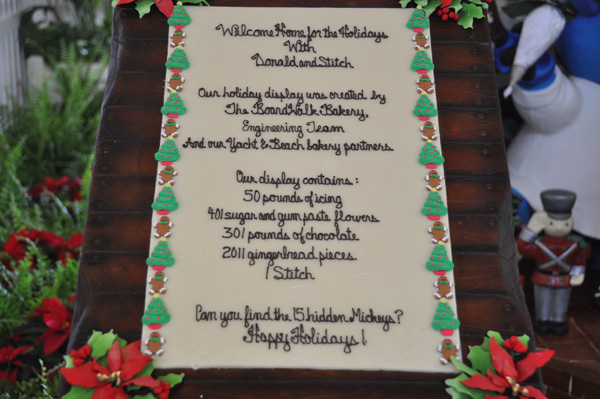 Welcome Home for the Holidays
With
Donald and Stitch
Our holiday display was created by
The BoardWalk Bakery,
Engineering Team
And our Yacht & Beach bakery partners.
Our display contains:
50 pounds of icing
401 sugar and gum paste flowers
301 pounds of chocolate
2011 gingerbread pieces
1 Stitch
Can you find the 15 hidden Mickeys?
Happy Holidays!